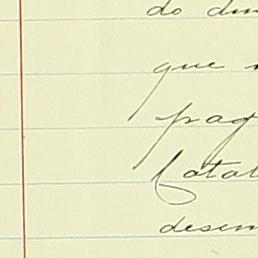 do din
que
pag
Catal
desem